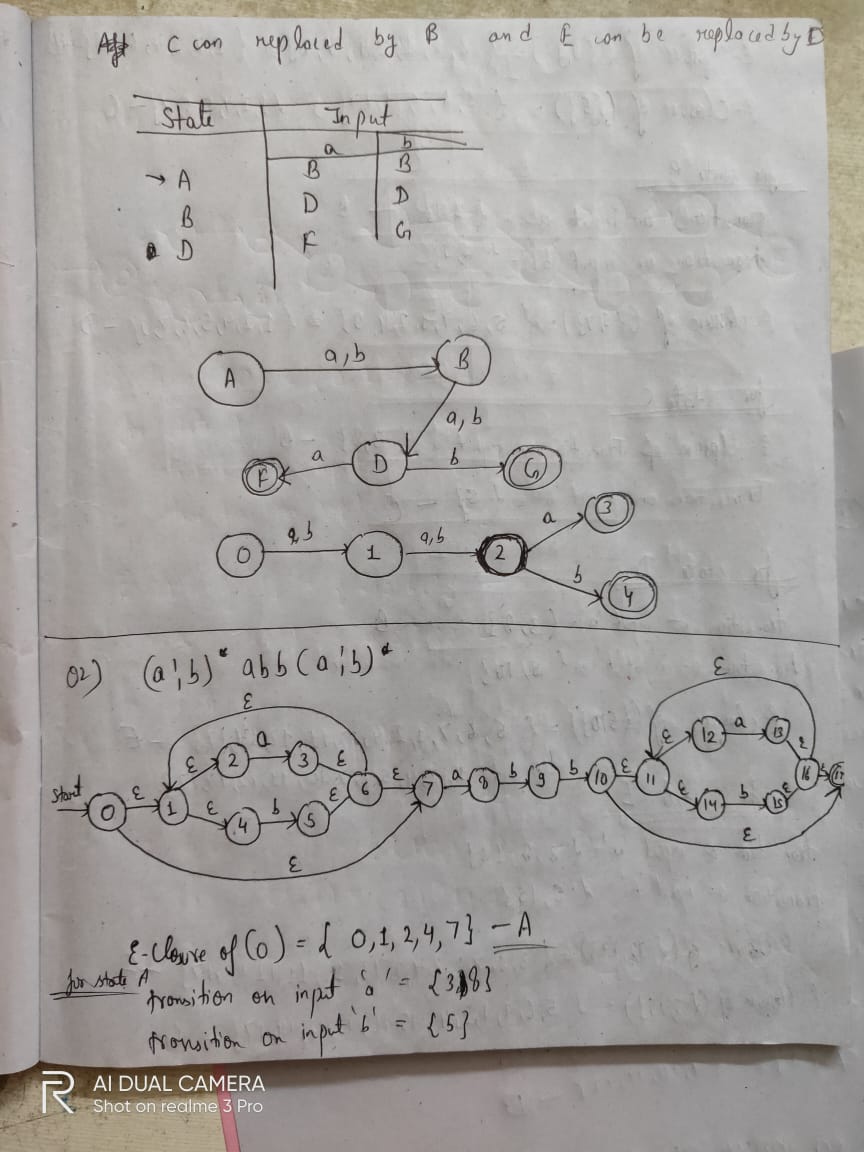 C can replaced by B and E can be replaced by D
State Input
a b
→ A B B
B D D
D F G
A a,b B
a, b
F a D b G
0 a,b 1 a,b 2 a 3
b 4
02) (a¦b)* abb (a¦b)*
ε ε
Start 0 ε 1 ε 2 a 3 ε 6 ε 7 a 8 b 9 b 10 ε 11 ε 12 a 13 ε 16 ε 17
ε 4 b 5 ε ε 14 b 15 ε
ε ε
ε-Closure of (0) = { 0,1,2,4,7} — A
for state A
transition on input 'a' = {3,8}
transition on input 'b' = {5}
AI DUAL CAMERA
Shot on realme 3 Pro